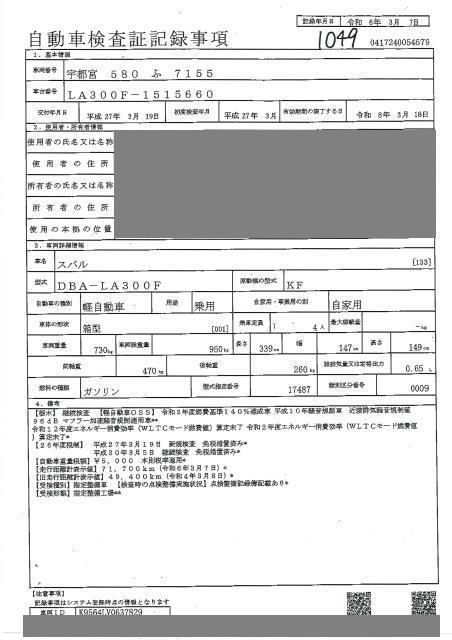 記録年月日 令和 6年 3月 7日
自動車検査証記録事項
1049 0417240054679
1. 基本情報
車両番号 宇都宮 580 ふ 7155
車台番号 LA300F-1515660
交付年月日 平成 27年 3月 19日 初度検査年月 平成 27年 3月 有効期間の満了する日 令和 8年 3月 18日
2. 使用者・所有者情報
使用者の氏名又は名称
使用者の住所
所有者の氏名又は名称
所有者の住所
使用の本拠の位置
3. 車両詳細情報
車名 スバル [133]
型式 DBA-LA300F 原動機の型式 KF
自動車の種別 軽自動車 用途 乗用 自家用・事業用の別 自家用
車体の形状 箱型 [001] 乗車定員 4人 最大積載量 -kg
車両重量 730kg 車両総重量 950kg 長さ 339cm 幅 147cm 高さ 149cm
前軸重 470kg 後軸重 260kg 総排気量又は定格出力 0.65 L
燃料の種類 ガソリン 型式指定番号 17487 類別区分番号 0009
4. 備考
【栃木】 継続検査 【軽自動車OSS】 令和2年度燃費基準140%達成車 平成10年騒音規制車 近接排気騒音規制値
96dB マフラー加速騒音規制適用車**
令和12年度エネルギー消費効率（WLTCモード燃費値）算定未了 令和2年度エネルギー消費効率（WLTCモード燃費値
）算定未了*
【26年度税制】 平成27年3月19日 新規検査 免税措置済み*
平成30年3月5日 継続検査 免税措置済み*
【自動車重量税額】¥5,000 本則税率適用*
【走行距離計表示値】71,700km（令和6年3月7日）*
【旧走行距離計表示値】49,400km（令和4年3月8日）*
【受検種別】指定整備車 【検査時の点検整備実施状況】点検整備記録簿記載あり*
【受検形態】指定整備工場**
【注意事項】
記録事項はシステム登録時点の情報となります
車両ID K9564LV0637829